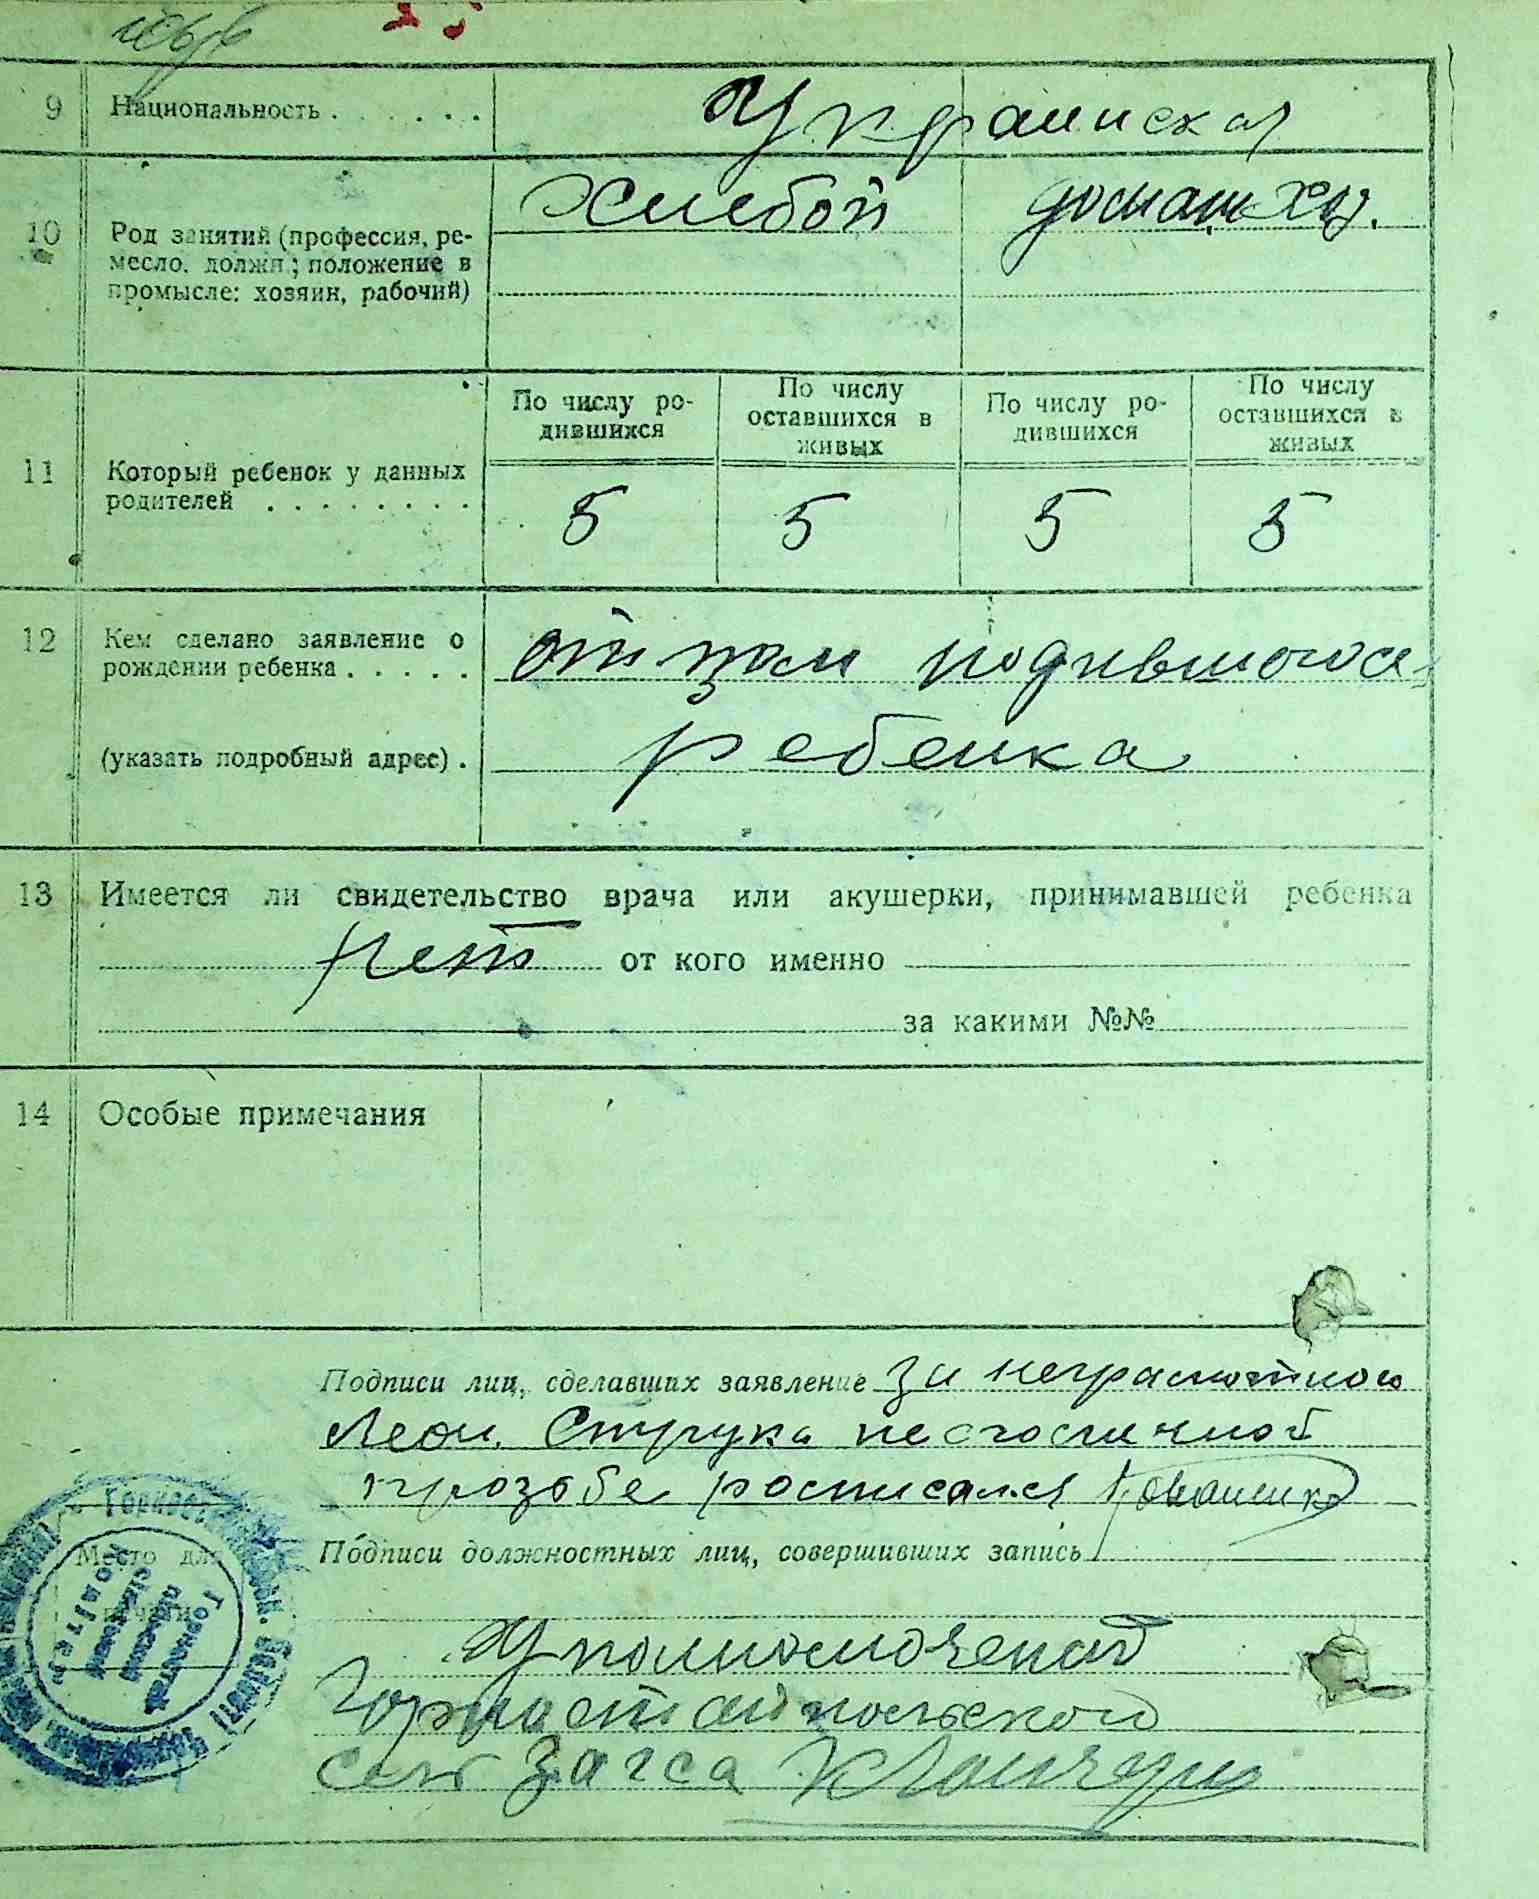 9 Национальность . . . . . . Украинская
10 Род занятий (профессия, ре-
месло, должн; положение в
промысле: хозяин, рабочий)
Хлебоп домашн хоз.
11 Который ребенок у данных
родителей . . . . . . . .
По числу ро-
дившихся
По числу
оставшихся в
живых
По числу ро-
дившихся
По числу
оставшихся в
живых
5 5 5 5
12 Кем сделано заявление о
рождении ребенка . . . . .
отцом родившогося
(указать подробный адрес) . ребенка
13 Имеется ли свидетельство врача или акушерки, принимавшей ребенка
нет от кого именно
за какими №№
14 Особые примечания
Подписи лиц, сделавших заявление За неграмотного
Леон. Струка по его личной
прозьбе росписался
Место для
печати
Подписи должностных лиц, совершивших запись
Уполномоченый
Горностайпольского
сел Загса